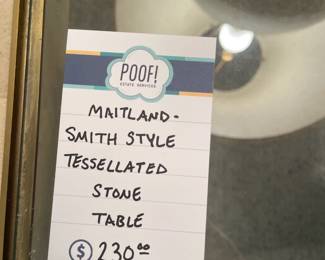 POOF!
ESTATE SERVICES
MAITLAND-
SMITH STYLE
TESSELLATED
STONE
TABLE
$ 230.00